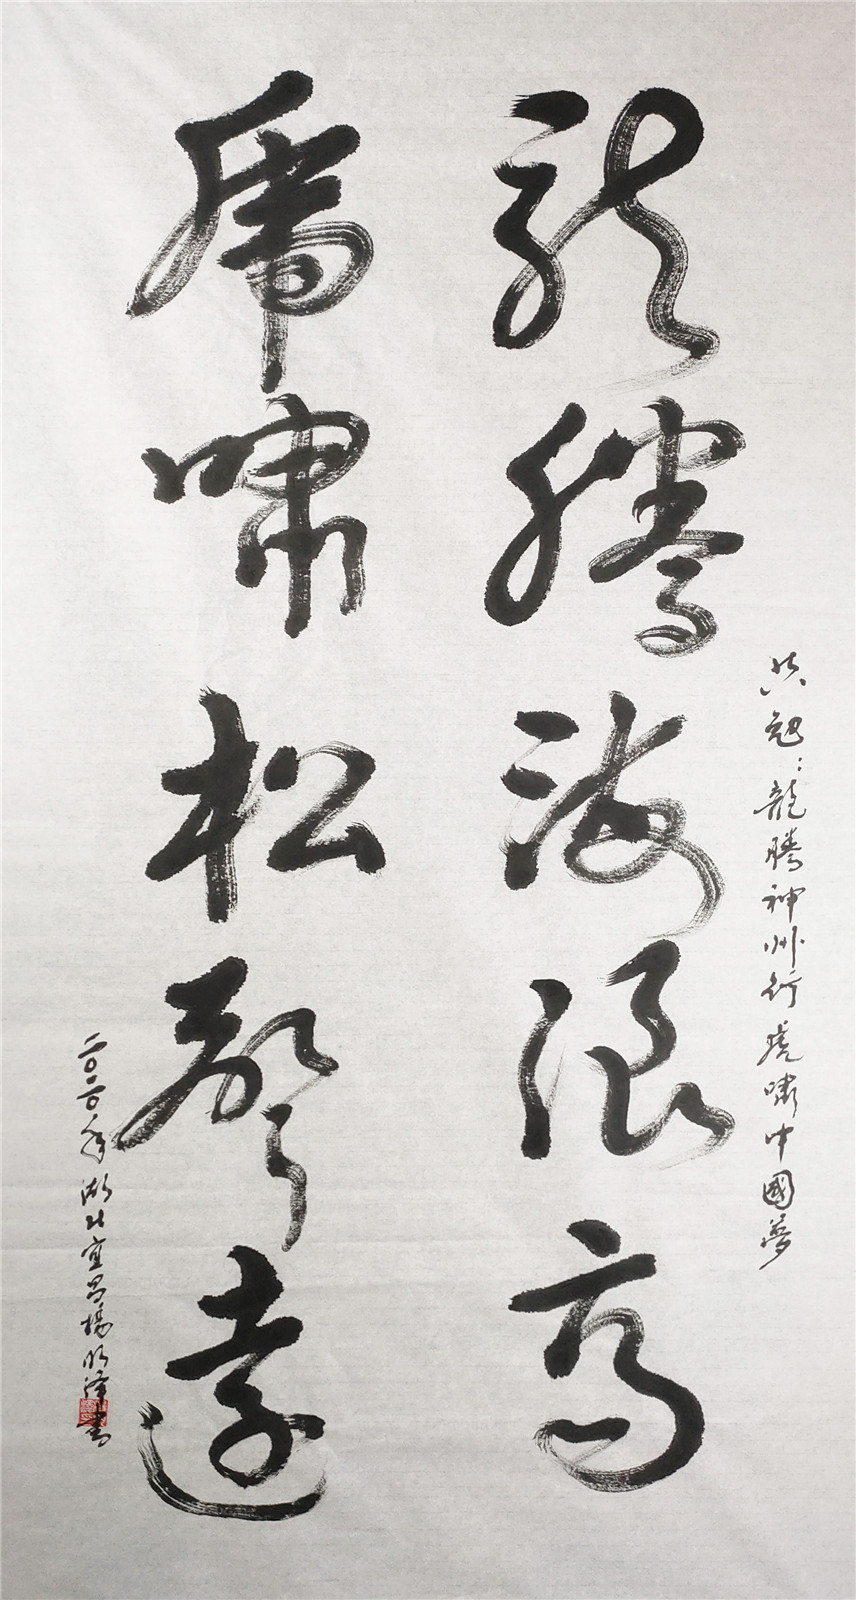 共勉：龍騰神州行虎嘯中國夢
龍騰海浪高
虎嘯松聲遠
二〇二〇年湖北宜昌楊明澤書